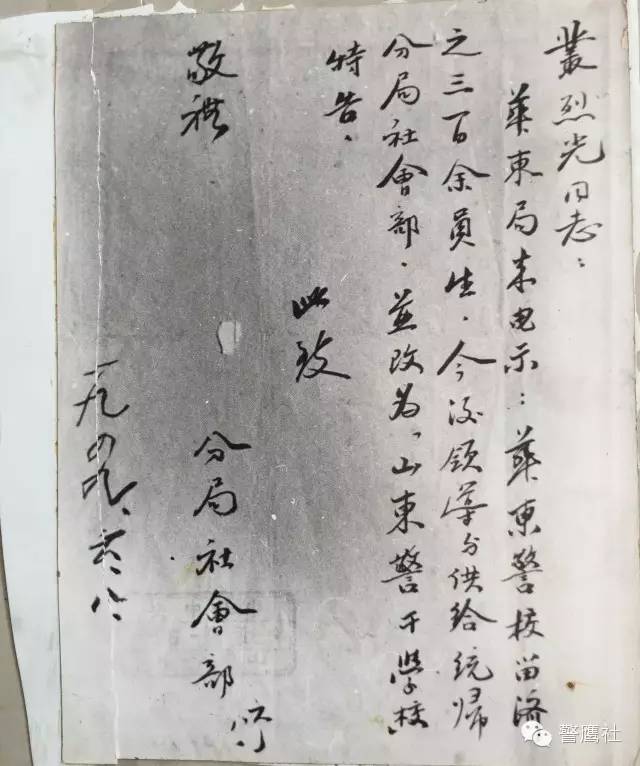 丛烈光同志：
華東局来电示：華東警校留济
之三百余員生．今后領導与供给统歸
分局社會部．並改为“山東警干學校
特告．
此致
敬礼
分局社會部
一九四九、六、八
警鹰社